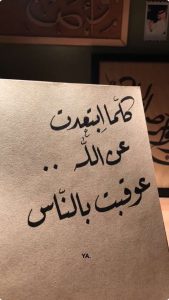 كلَّما اِبتعدت
عن اللّٰه ..
عوقبت بالنَّاس
٧٨